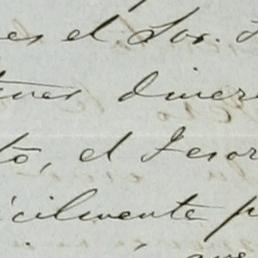 es el Sor.
tenes diner
to, el Tesor
cilmente p
que